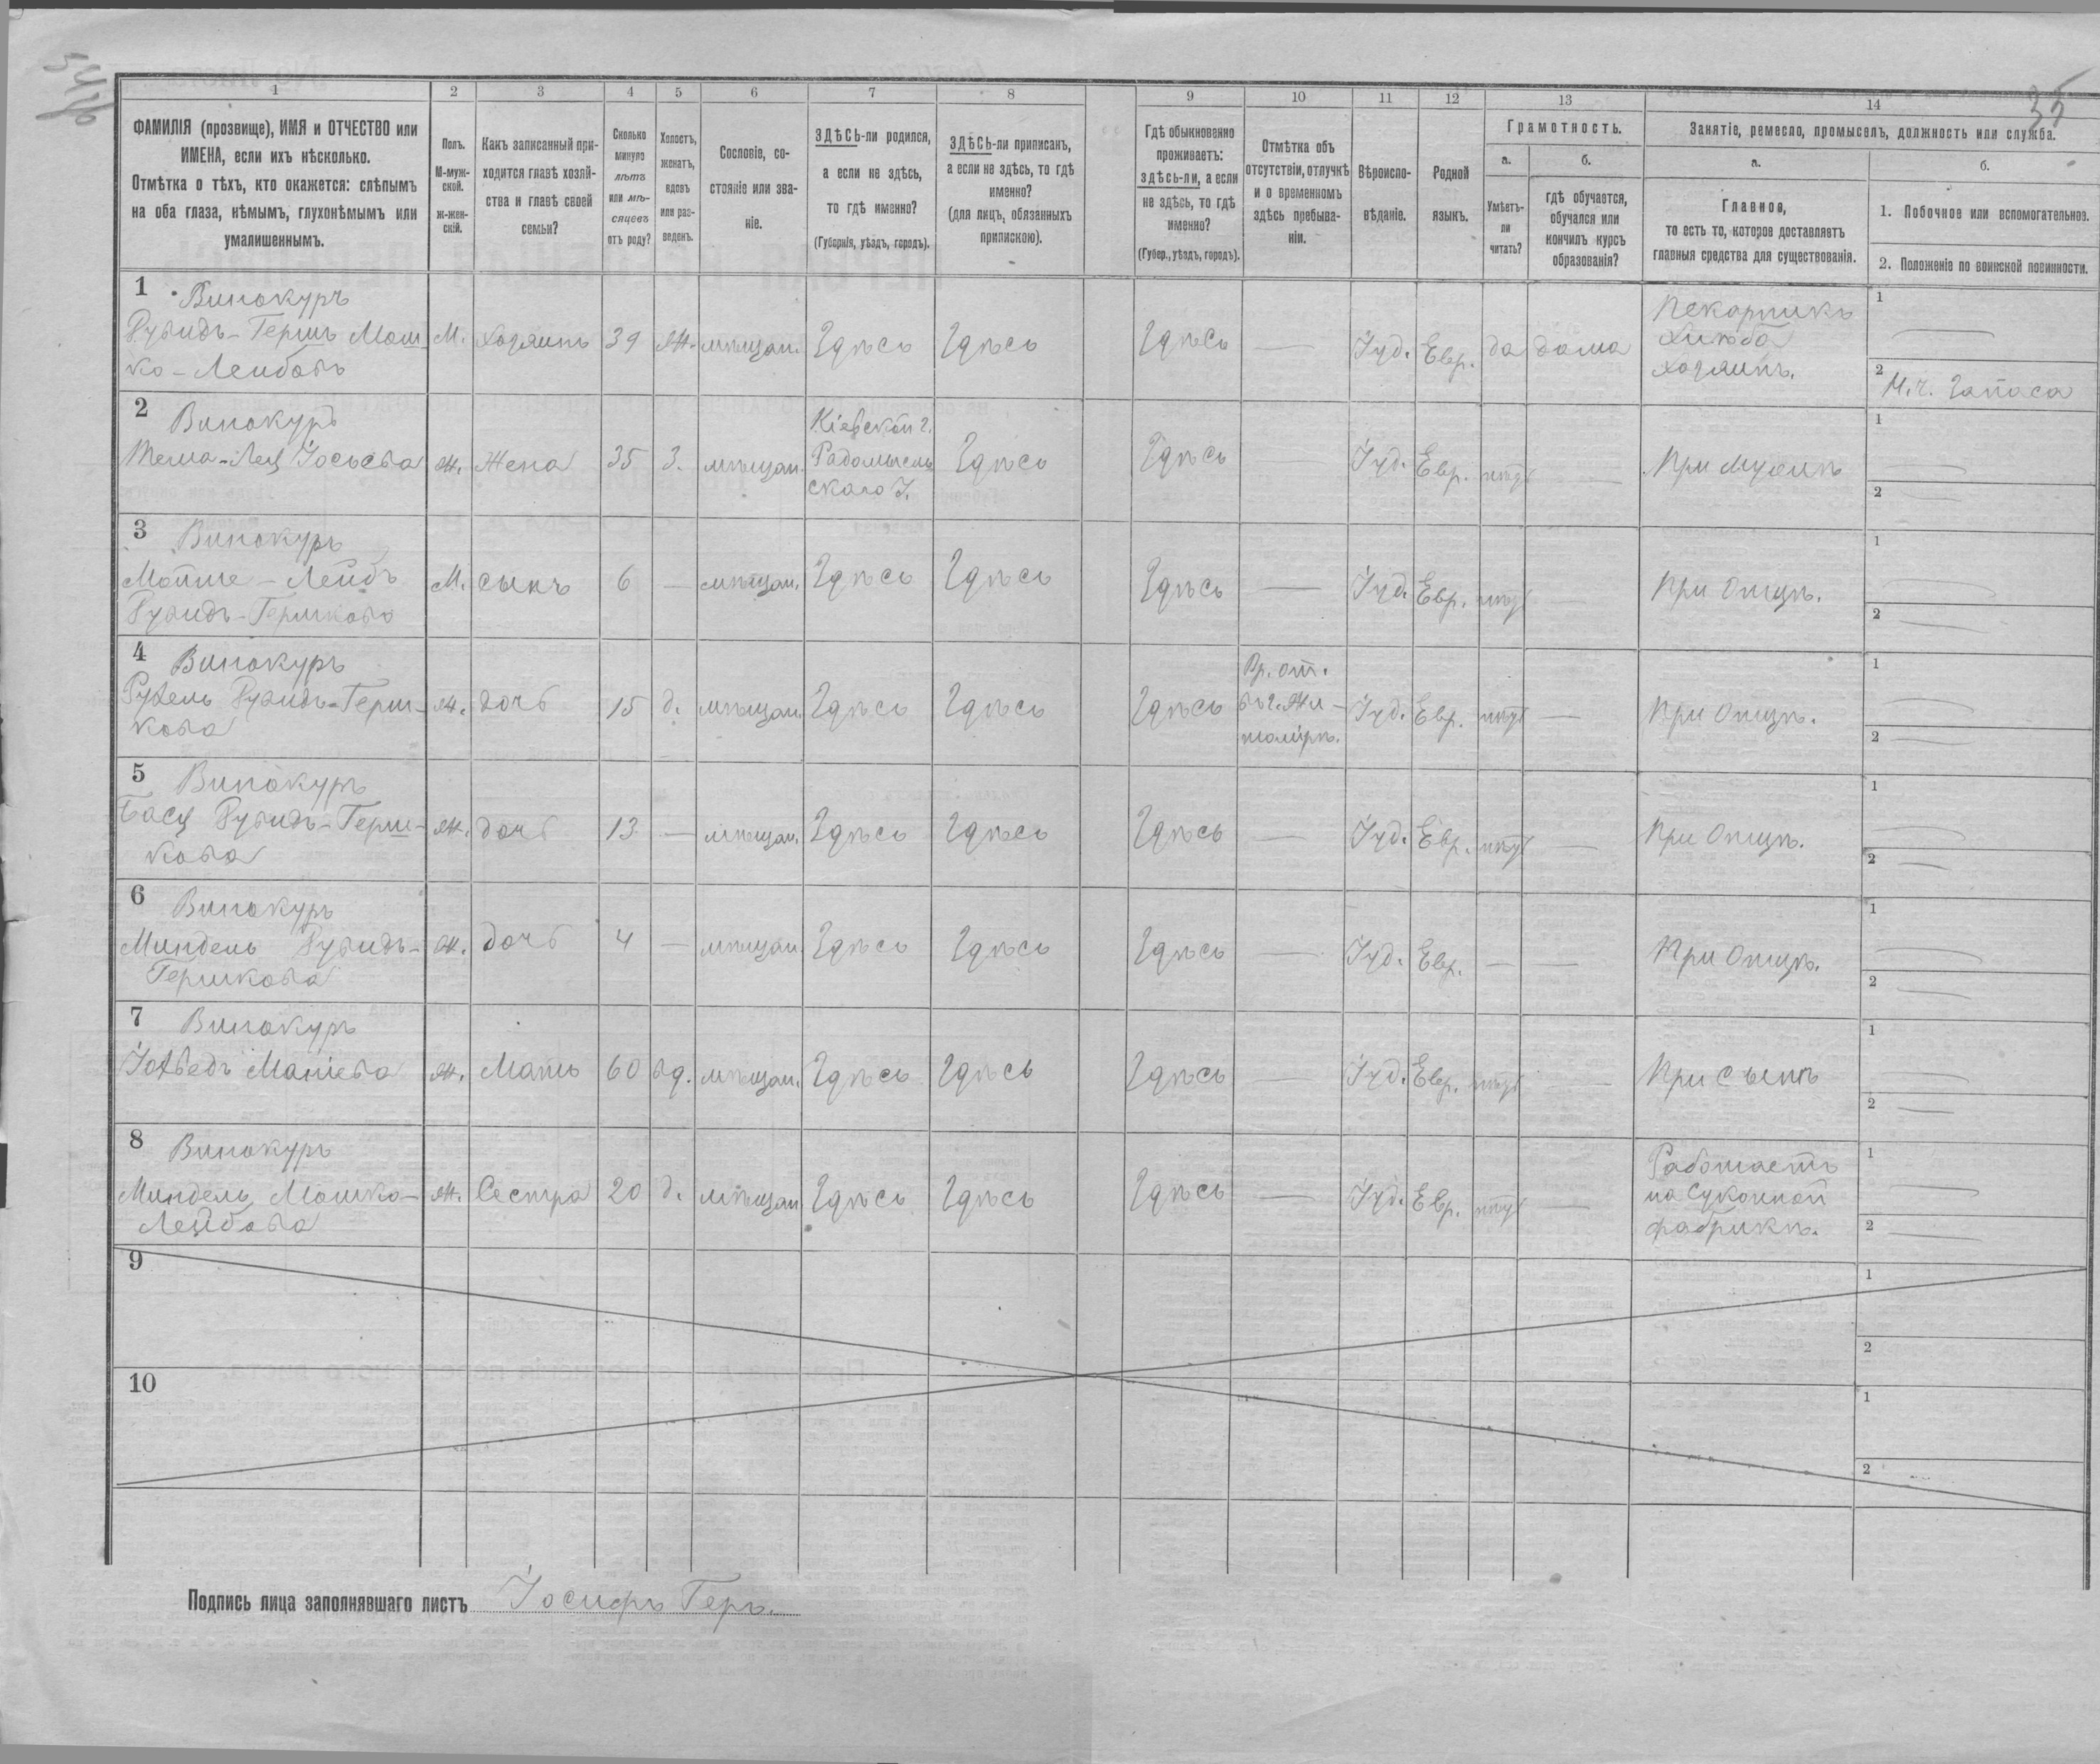 35
1 2 3 4 5 6 7 8 9 10 11 12 13 14
ФАМИЛІЯ (прозвище), ИМЯ и ОТЧЕСТВО или
ИМЕНА, если ихъ нѣсколько.
Отмѣтка о тѣхъ, кто окажется: слѣпымъ
на оба глаза, нѣмымъ, глухонѣмымъ или
умалишеннымъ.
Полъ.
М-муж-
ской.
Ж-жен-
скій.
Какъ записанный при-
ходится главѣ хозяй-
ства и главѣ своей
семьи?
Сколько
минуло
лѣтъ
или мѣ-
сяцевъ
отъ роду?
Холостъ,
женатъ,
вдовъ
или раз-
веденъ.
Сословіе, со-
стояніе или зва-
ніе.
ЗДѢСЬ-ли родился,
а если не здѣсь,
то гдѣ именно?
(Губернія, уѣздъ, городъ).
ЗДѢСЬ-ли приписанъ,
а если не здѣсь, то гдѣ
именно?
(для лицъ, обязанныхъ
припискою).
Гдѣ обыкновенно
проживаетъ:
здѣсь-ли, а если
не здѣсь, то гдѣ
именно?
(Губер., уѣздъ, городъ).
Отмѣтка объ
отсутствіи, отлучкѣ
и о временномъ
здѣсь пребыва-
ніи.
Вѣроиспо-
вѣданіе.
Родной
языкъ.
Грамотность.
а.
Умѣетъ-
ли
читать?
б.
гдѣ обучается,
обучался или
кончилъ курсъ
образованія?
Занятіе, ремесло, промыселъ, должность или служба.
а.
Главное,
то есть то, которое доставляетъ
главныя средства для существованія.
б.
1. Побочное или вспомогательное.
2. Положеніе по воинской повинности.
1 Винокуръ
Рувидъ-Гершъ Мош-
ко-Лейбовъ
М. хозяинъ 39 Ж. мѣщан. Здѣсь Здѣсь Здѣсь — Іуд. Евр. да дома
Пекарникъ
хлѣба
хозяинъ.
1 —
2 М.ч. Запаса
2 Винокуръ
Тема-Лея Іосьева
Ж. Жена 35 З. мѣщан.
Кіевской г.
Радомысль
скаго У.
Здѣсь Здѣсь Іуд. Евр. нѣтъ — При мужѣ
1 —
2 —
3 Винокуръ
Мотше-Лейбъ
Рувидъ-Гершкова
М. сынъ 6 — мѣщан. Здѣсь Здѣсь Здѣсь — Іуд. Евр. нѣтъ — При Отцѣ.
1 —
2 —
4 Винокуръ
Рухель Рувидъ-Герш-
кова
Ж. дочь 15 д. мѣщан. Здѣсь Здѣсь Здѣсь
Вр. от.
въ г. Жи-
томірѣ.
Іуд. Евр. нѣтъ — При Отцѣ.
1 —
2 —
5 Винокуръ
Бася Рувидъ-Герш-
кова
Ж. дочь 13 — мѣщан. Здѣсь Здѣсь Здѣсь — Іуд. Евр. нѣтъ — При Отцѣ.
1 —
2 —
6 Винокуръ
Миндель Рувидъ-
Гершкова
Ж. дочь 4 — мѣщан. Здѣсь Здѣсь Здѣсь — Іуд. Евр. — — При Отцѣ.
1 —
2 —
7 Винокуръ
Ж. Мать 60 вд. мѣщан. Здѣсь Здѣсь Здѣсь — Іуд. Евр. нѣтъ — При сынѣ
1 —
2 —
8 Винокуръ
Миндель Мошко-
Лейбова
Ж. Сестра 20 д. мѣщан. Здѣсь Здѣсь Здѣсь — Іуд. Евр. нѣтъ —
Работаетъ
на суконной
фабрикѣ.
1 —
2 —
9
1
2
10
1
2
Подпись лица заполнявшаго листъ Іосифъ Геръ.